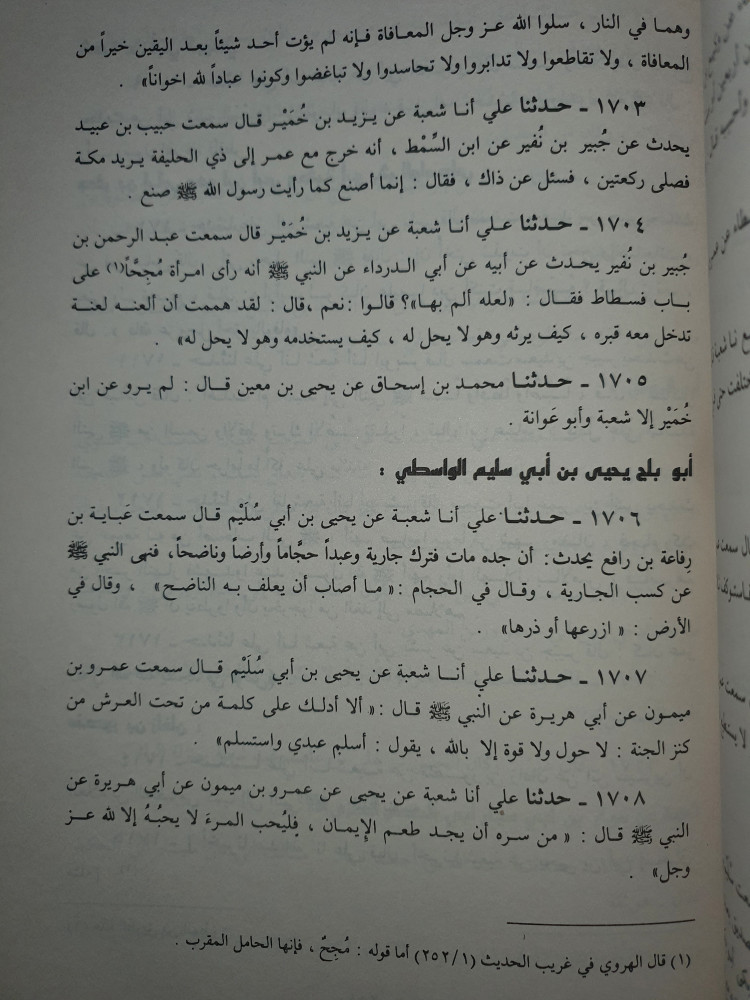 وهما في النار ، سلوا الله عز وجل المعافاة فإنه لم يؤت أحد شيئاً بعد اليقين خيراً من
المعافاة ، ولا تقاطعوا ولا تدابروا ولا تحاسدوا ولا تباغضوا وكونوا عباداً لله اخواناً» .
١٧٠٣ - حدثنا علي أنا شعبة عن يزيد بن خُمَيْر قال سمعت حبيب بن عبيد
يحدث عن جُبير بن نُفير عن ابن السِّمْط ، أنه خرج مع عمر إلى ذي الحليفة يريد مكة
فصلى ركعتين ، فسئل عن ذاك ، فقال : إنما أصنع كما رأيت رسول الله ﷺ صنع .
١٧٠٤ - حدثنا علي أنا شعبة عن يزيد بن خُمَيْر قال سمعت عبد الرحمن بن
جُبير بن نُفير يحدث عن أبيه عن أبي الدرداء عن النبي ﷺ أنه رأى امرأة مُجِحًّا(١) على
باب فسطاط فقال : «لعله ألم بها»؟ قالوا : نعم ،قال : لقد هممت أن ألعنه لعنة
تدخل معه قبره ، كيف يرثه وهو لا يحل له ، كيف يستخدمه وهو لا يحل له» .
١٧٠٥ - حدثنا محمد بن إسحاق عن يحيى بن معين قال : لم يرو عن ابن
خُمَيْر إلا شعبة وأبو عَوانة .
أبو بلج يحيى بن أبي سليم الواسطي :
١٧٠٦ - حدثنا علي أنا شعبة عن يحيى بن أبي سُلَيْم قال سمعت عَباية بن
رِفاعة بن رافع يحدث : أن جده مات فترك جارية وعبداً حجَّاماً وأرضاً وناضحاً، فنهى النبي ﷺ
عن كسب الجارية ، وقال في الحجام : « ما أصاب أن يعلف به الناضح» ، وقال في
الأرض : « ازرعها أو ذرها» .
١٧٠٧ - حدثنا علي أنا شعبة عن يحيى بن أبي سُلَيْم قال سمعت عمرو بن
ميمون عن أبي هريرة عن النبي ﷺ قال : « ألا أدلك على كلمة من تحت العرش من
كنز الجنة : لا حول ولا قوة إلا بالله ، يقول : أسلم عبدي واستسلم» .
١٧٠٨ - حدثنا علي أنا شعبة عن يحيى عن عمرو بن ميمون عن أبي هريرة عن
النبي ﷺ قال : « من سره أن يجد طعم الإِيمان ، فِليُحب المرءَ لا يحبُهُ إلا لله عز
وجل» .
(١) قال الهروي في غريب الحديث (٢٥٢/١) أما قوله : مُجِحٌ ، فإنها الحامل المقرب .